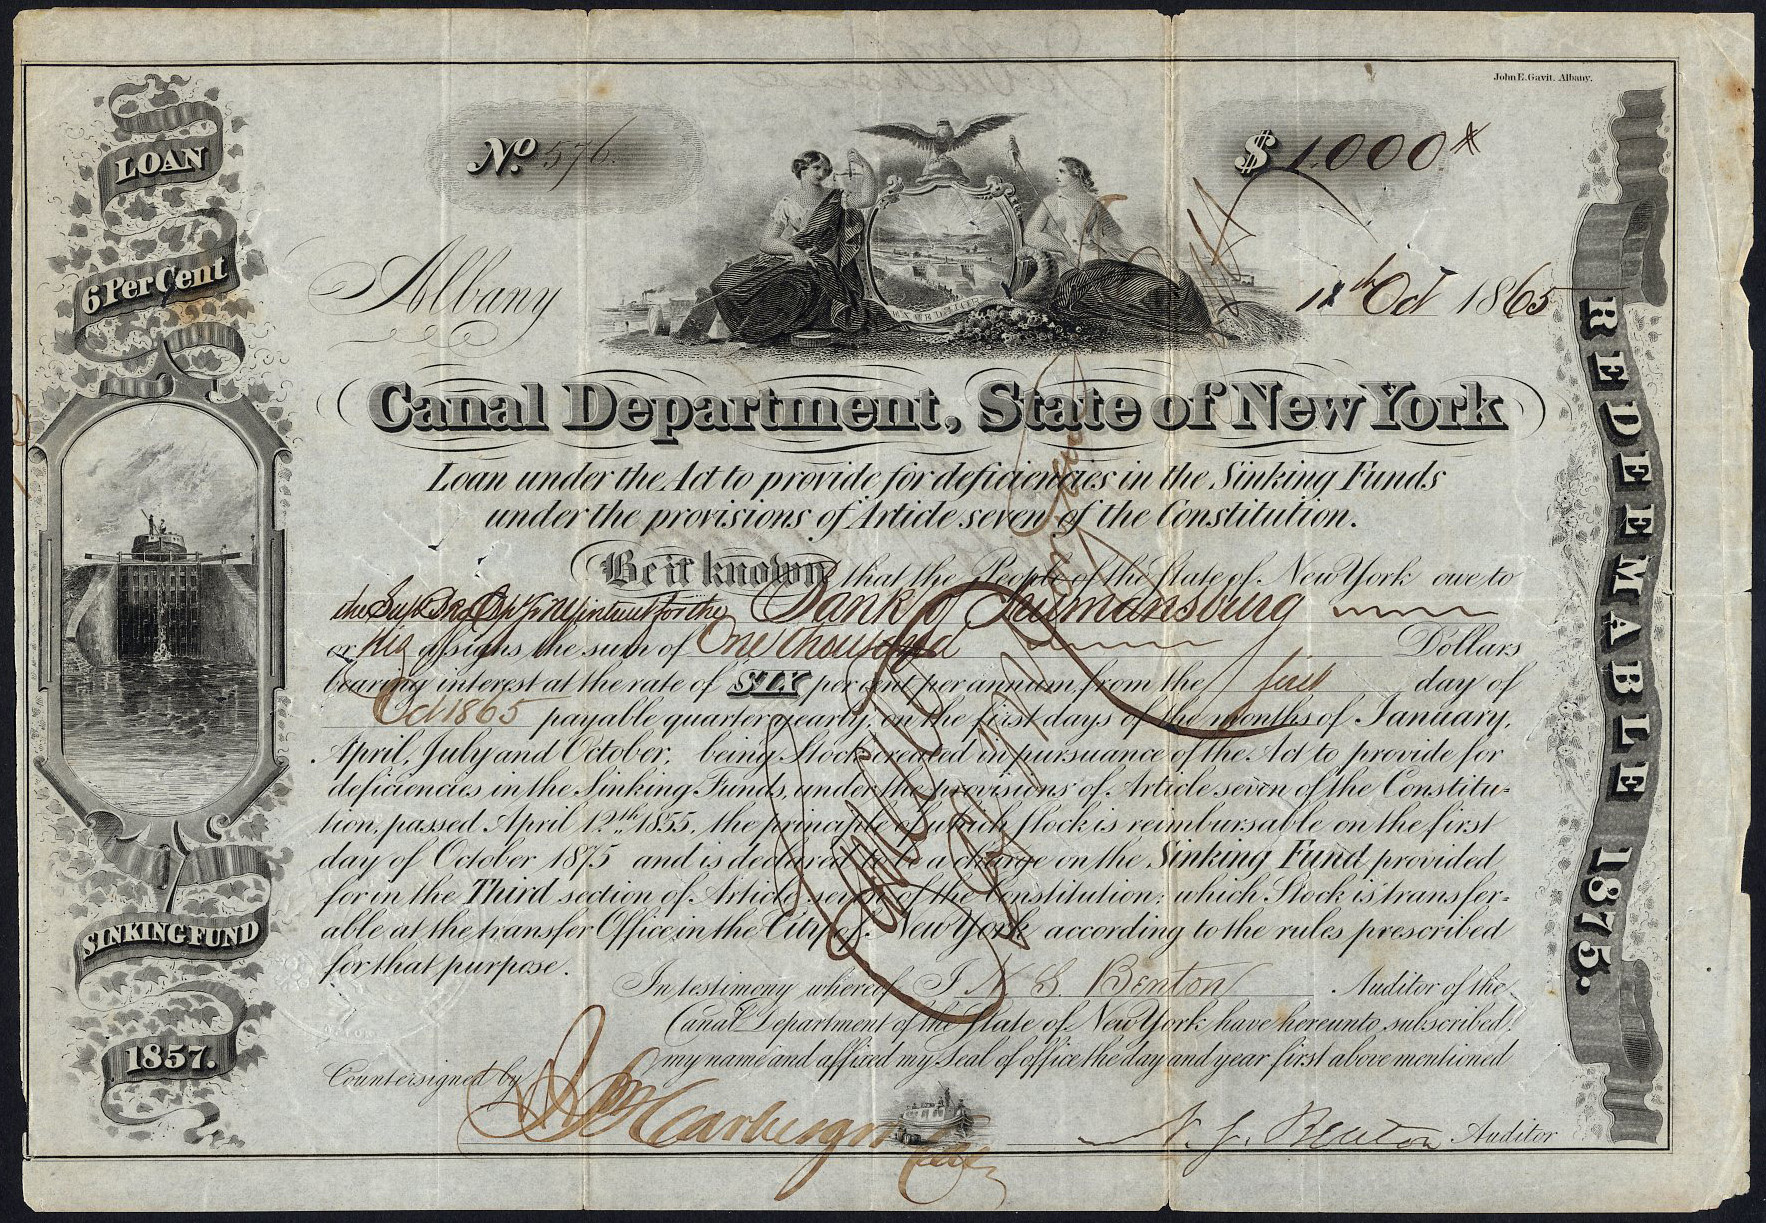 John E. Gavit. Albany.
LOAN
6 Per Cent
SINKING FUND
1857.
No. 576.
$ 1,000
Albany
12th Oct 1865
Canal Department, State of New York
Loan under the Act to provide for deficiencies in the Sinking Funds
under the provisions of Article seven of the Constitution.
Be it known that the People of the State of New York owe to
the in trust for the Bank of Trumansburg
or his assigns the sum of One thousand Dollars
bearing interest at the rate of SIX per cent per annum, from the first day of
Oct 1865 payable quarter yearly, on the first days of the months of January,
April, July and October, being Stock created in pursuance of the Act to provide for
deficiencies in the Sinking Funds, under the provisions of Article seven of the Constitu-
tion, passed April 12th 1855, the principle of which Stock is reimbursable on the first
day of October 1875 and is declared to be a charge on the Sinking Fund provided
for in the Third section of Article seven of the Constitution; which Stock is transfer-
able at the transfer Office in the City of New York according to the rules prescribed
for that purpose.
In testimony whereof I N. S. Benton Auditor of the
Canal Department of the State of New York have hereunto subscribed
my name and affixed my Seal of office the day and year first above mentioned
Countersigned by
N. S. Benton Auditor
REDEEMABLE 1875.